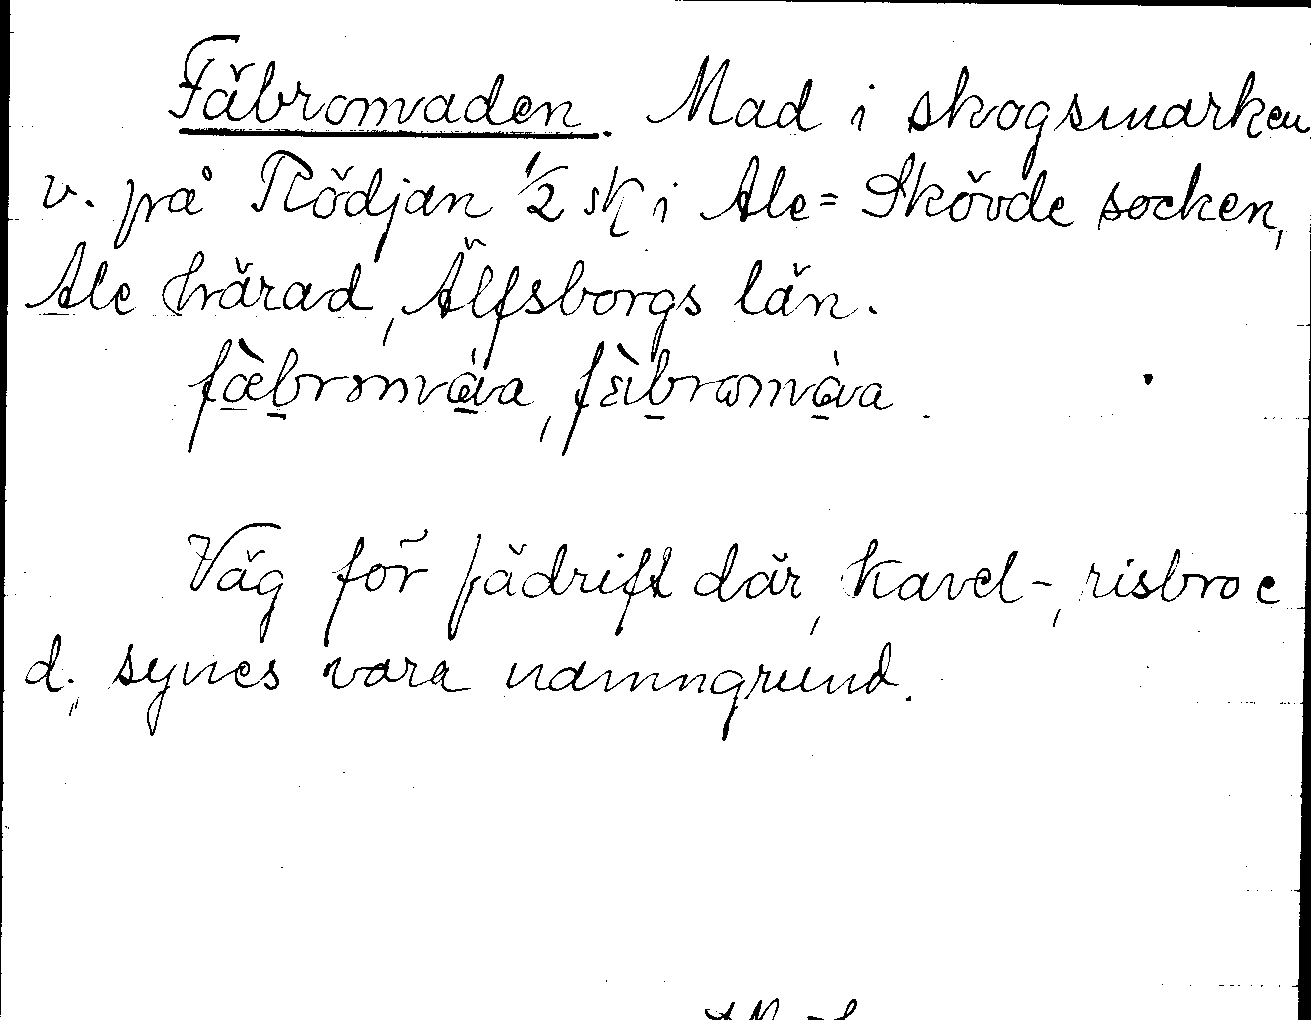 Fäbromaden. Mad i skogsmarken
v. på Rödjan 1/2 sk i Ale=Skövde socken,
Ale härad, Älfsborgs län.
Väg för fädrift där, kavel-, risbro e
d., synes vara namngrund.